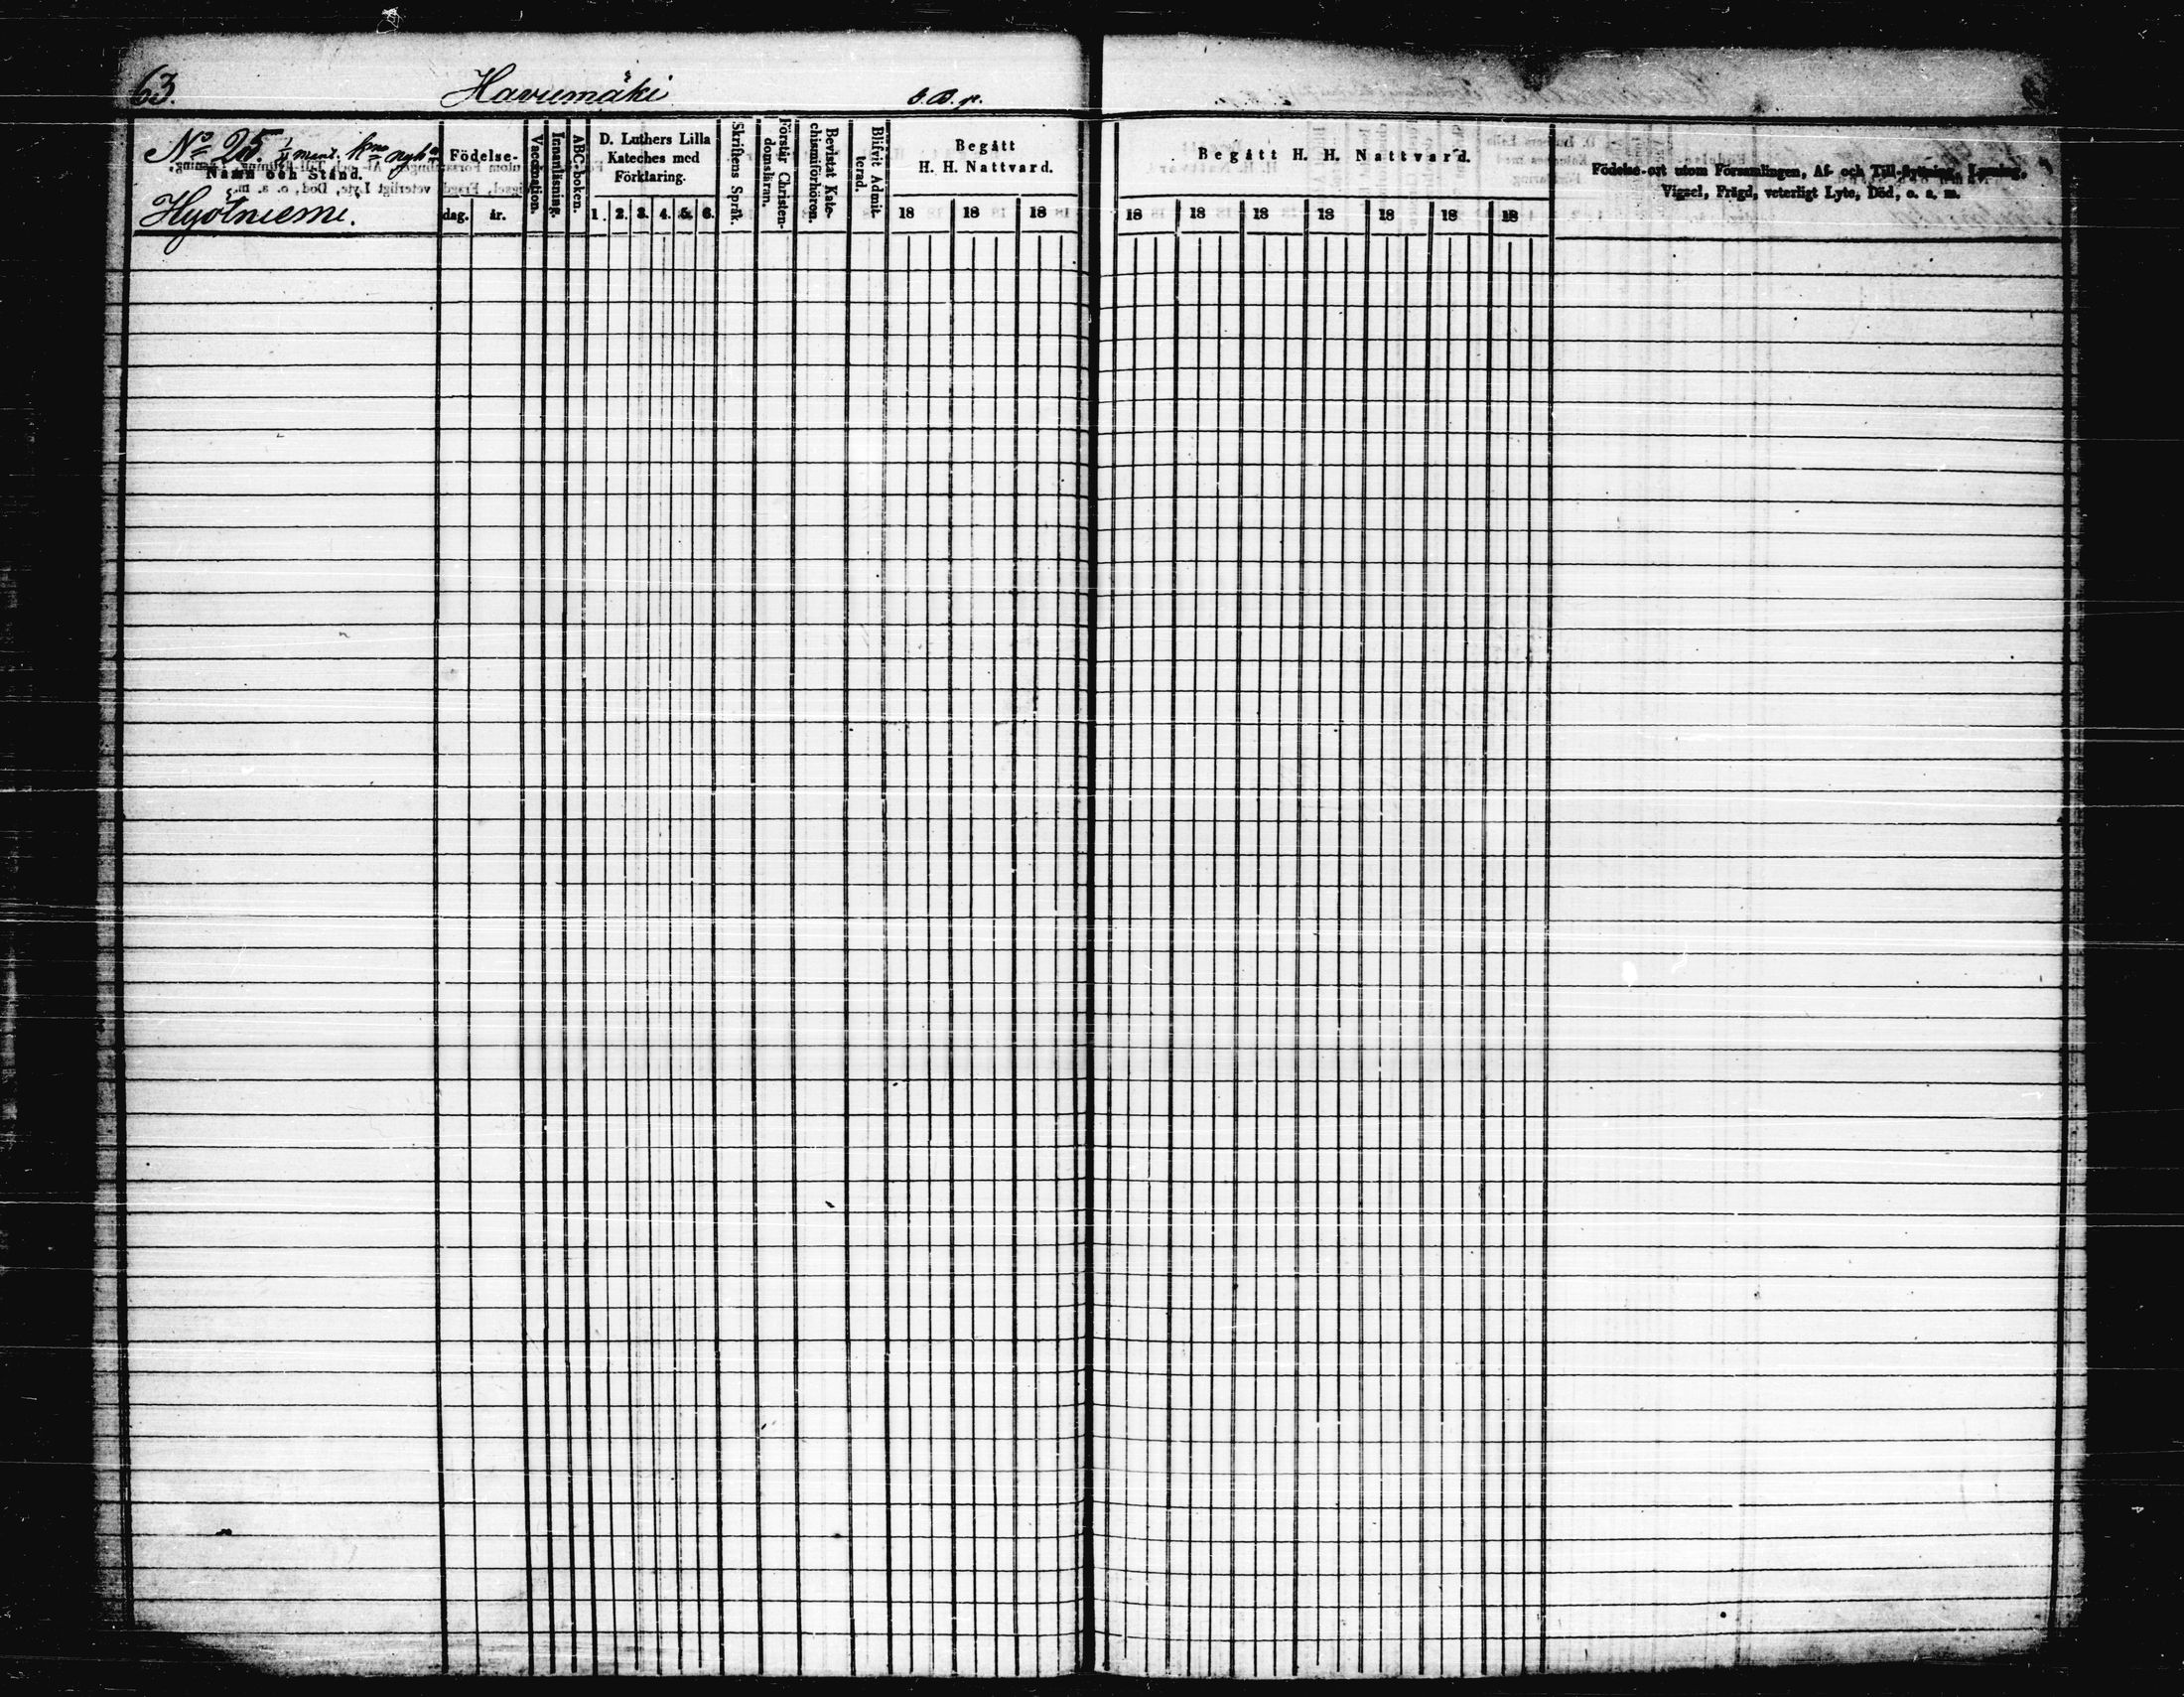 63. Haviemäki
No 25. mant.
Namn och Stånd.
Hyötniemi.
Födelse-
dag. år.
Vaccination.
Innanläsning.
ABC-boken.
D. Luthers Lilla
Kateches med
Förklaring.
1. 2. 3. 4. 5. 6.
Skriftens Språk.
Förstår Christen-
domsläran.
Bevistat Kate-
chismiförhören.
Blifvit Admit-
terad.
Begått
H. H. Nattvard.
18 18 18
Begått H. H. Nattvard.
18 18 18 18 18 18 18
Födelse-ort utom Församlingen, Af- och Till-flyttning, Lysning,
Vigsel, Frägd, veterligt Lyte, Död, o. s. m.